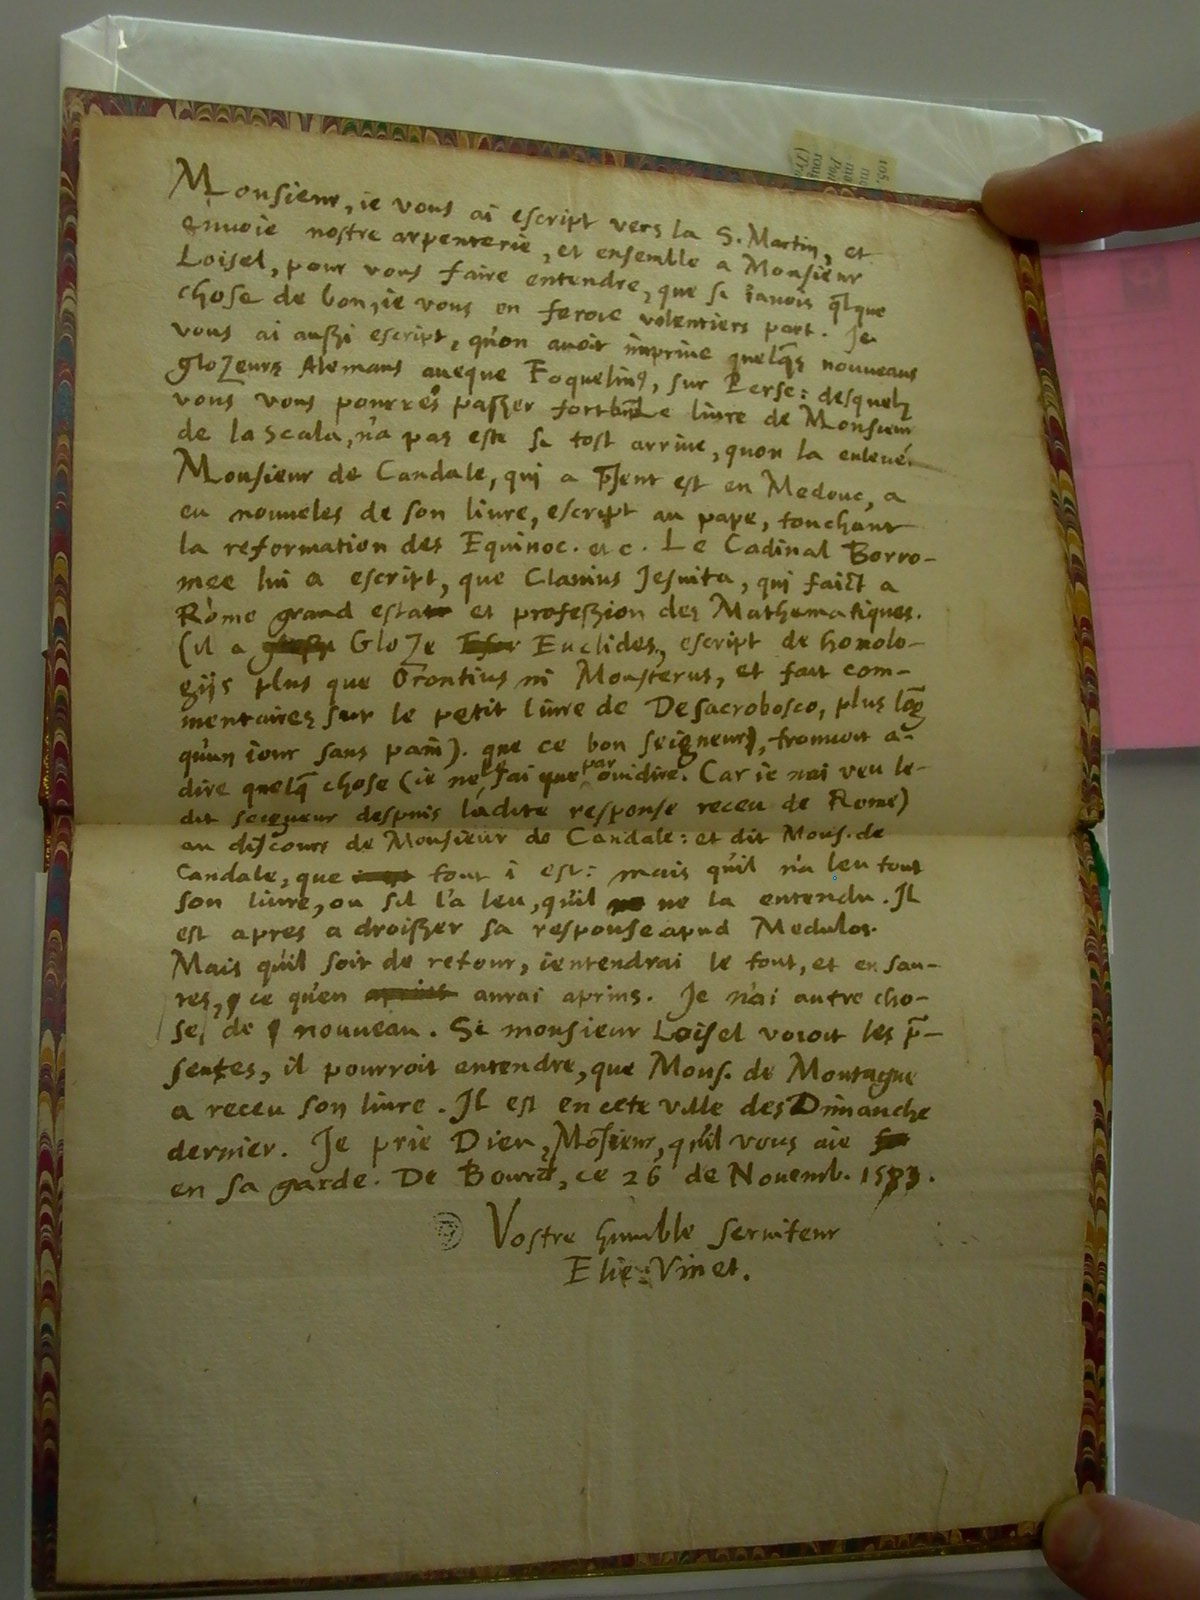 Monsieur, ie vous ai escript vers la S. Martin, et
enuoie nostre arpenterie, et ensemble a Monsieur
Loisel, pour vous faire entendre, que si i'auois q̃lque
chose de bon, ie vous en feroie volentiers part. Je
vous ai außi escript, qu'on auoit imprime quelq̃s nouueaus
gloZeurs Alemans aueque Foquelinus, sur Perse: desquelz
vous vous pourrés paßer fort bien. Le liure de Monsieur
de la Scala, n'a pas este si tost arriue, quon la enleué.
Monsieur de Candale, qui a p̃sent est en Medouc, a
eu nouueles de son liure, escript au pape, touchant
la reformation des Equinoc. etc. Le Cadinal Borro-
mee lui a escript, que Clauius Jesuita, qui faict a
Rome grand estat et profeßion des Mathematiques.
(il a GloZe Euclides, escript de horolo-
gijs plus que Orontius ni Monsterus, et fait com-
mentaires sur le petit liure de Desacrobosco, plus lõg
qu'un iour sans pain). que ce bon seigneur, trouuoit a-
dire quelq̃ chose (ie ne sai que par ouidire. Car ie nai veu le-
dit seigneur despuis ladite response receu de Rome)
au discours de Monsieur de Candale: et dit Mons. de
Candale, que tout i est: mais qu'il n'a leu tout
son liure, ou s'il l'a leu, qu'il ne la entendu. Il
est apres a droißer sa response apud Medulos.
Mais qu'il soit de retour, i'entendrai le tout, et en sau-
res, ce qu'en aurai aprins. Je n'ai autre cho-
se, de nouueau. Si monsieur Loisel voioit les p̃-
sentes, il pourroit entendre, que Mons. de Montagne
a receu son liure. Il est en cete ville des Dimanche
dernier. Je prie Dieu, Mõsieur, qu'il vous aie
en sa garde. De Bourd, ce 26 de Nouemb. 1583.
Vostre humble seruiteur
Elie Vinet.